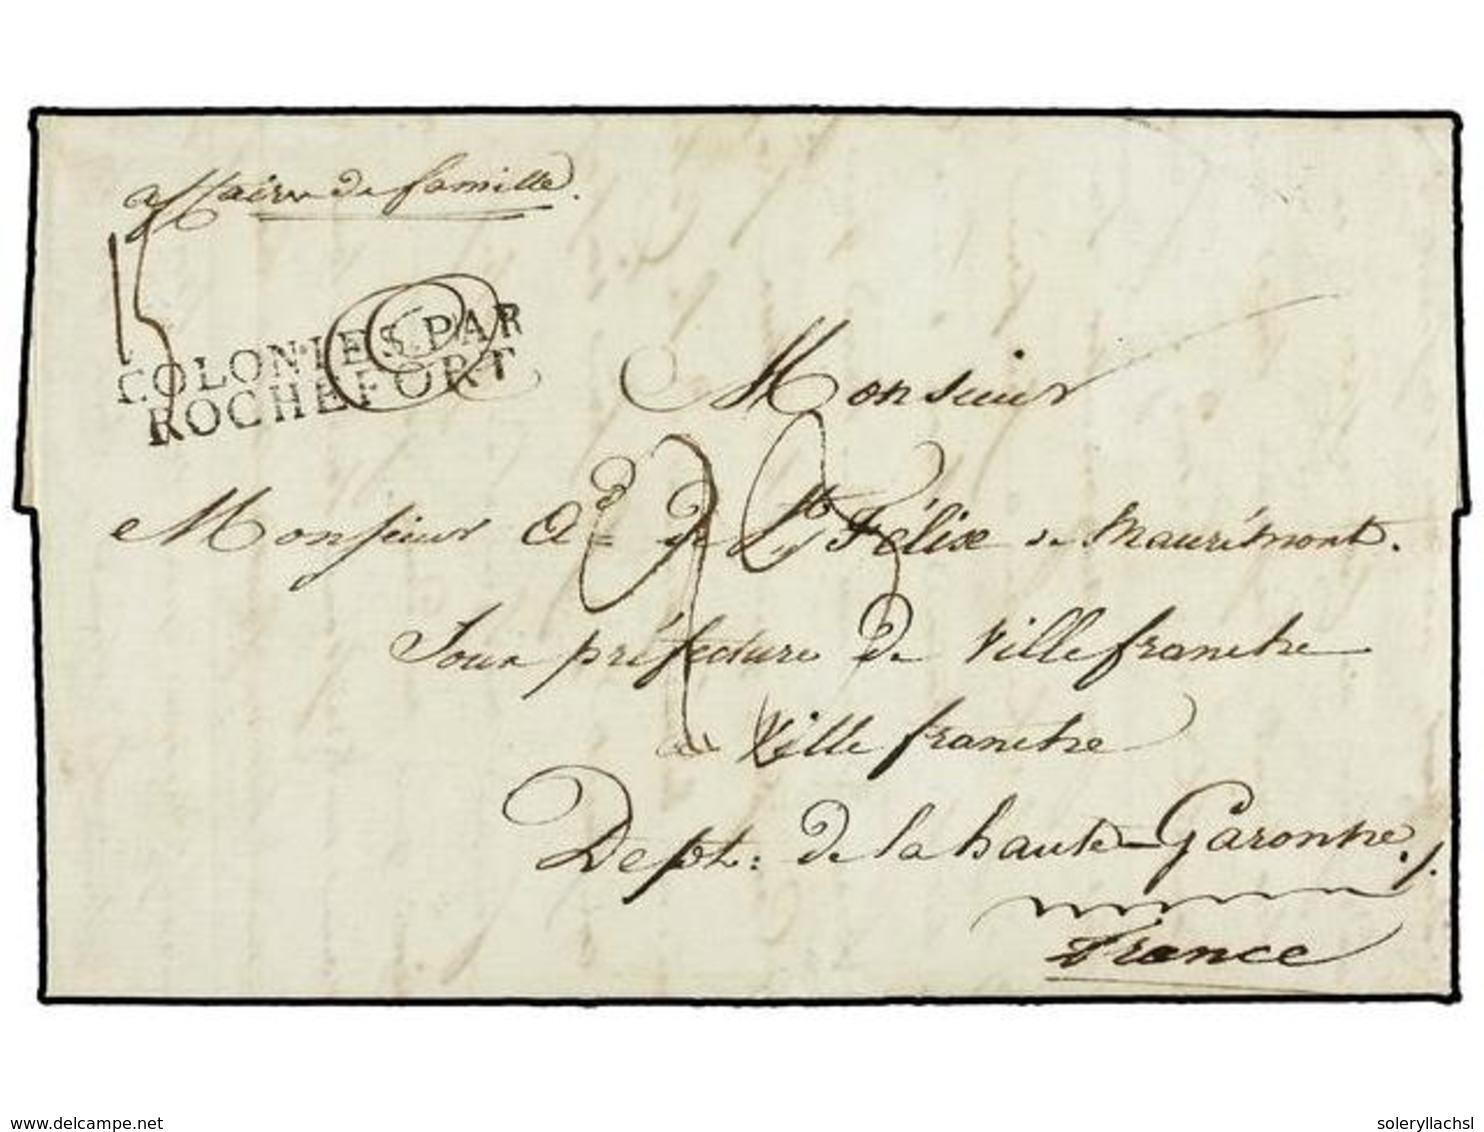 affaire de famille.
15
COLONIES PAR
ROCHEFORT
Monsieur
Monsieur Ad. de St. Félix de Maurémont.
Sous préfecture de Villefranche
a Ville franche
Dept: de la haute-Garonne./.
France
www.delcampe.net
soleryllachsl